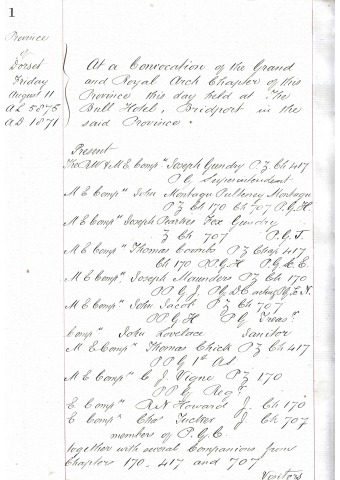 1
Province
of
Dorset
Friday
August 11
AL 5875
AD 1871
At a Convocation of the Grand
and Royal Arch Chapter of this
Province this day held at The
Bull Hotel, Bridport in the
said Province.
Present
The R.W & M.E Compn Joseph Gundry P Z Ch 417
P G Superintendent
M E Compn John Montagu Pulteney Montagu
P Z Ch 170 Ch 707 P.G.H.
M E Compn Joseph Pearkes Fox Gundry
Z Ch 707 P.G.J.
M E Compn Thomas Coombs P Z Chap 417
Ch 170 PPGH PG
M E Compn Joseph Maunders P Z Ch 170
PPGJ
M E Compn John Jacob P Z Ch 707
PPGH PG Treasr
Compn John Lovelace Janitor
M E Compn Thomas Chick P Z Ch 417
PPG 1st As
M E Compn C J Vigne P Z 170
PPG Regr
E Compn R N Howard J. Ch 170
E Compn Chas Tucker J Ch 707
members of P.G.C.
together with several Companions from
Chapters 170, 417 and 707
Visitors